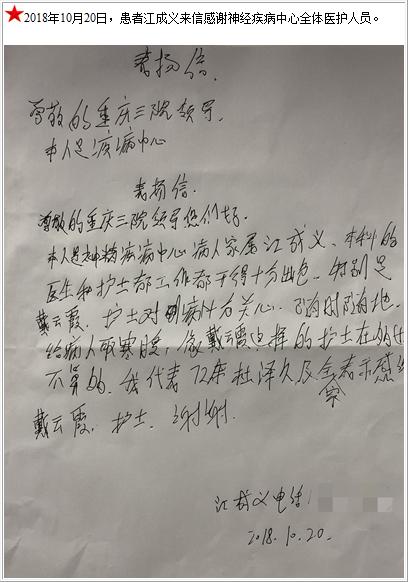 ★2018年10月20日，患者江成义来信感谢神经疾病中心全体医护人员。
表扬信
尊敬的重庆三院领导
本人是疾病中心
表扬信.
尊敬的重庆三院领导您们好
本人是神精疾病中心病人家属江成义、本科的
医生和护士都工作都干得十分出色. 特别是
戴云霞. 护士对病十分关心. 随时随地.
给病人嘘寒, 像戴云霞这样的护士在
不多的. 我代表72床杜泽久及全家表示感
戴云霞. 护士. 谢谢.
江成义电话
2018.10.20.